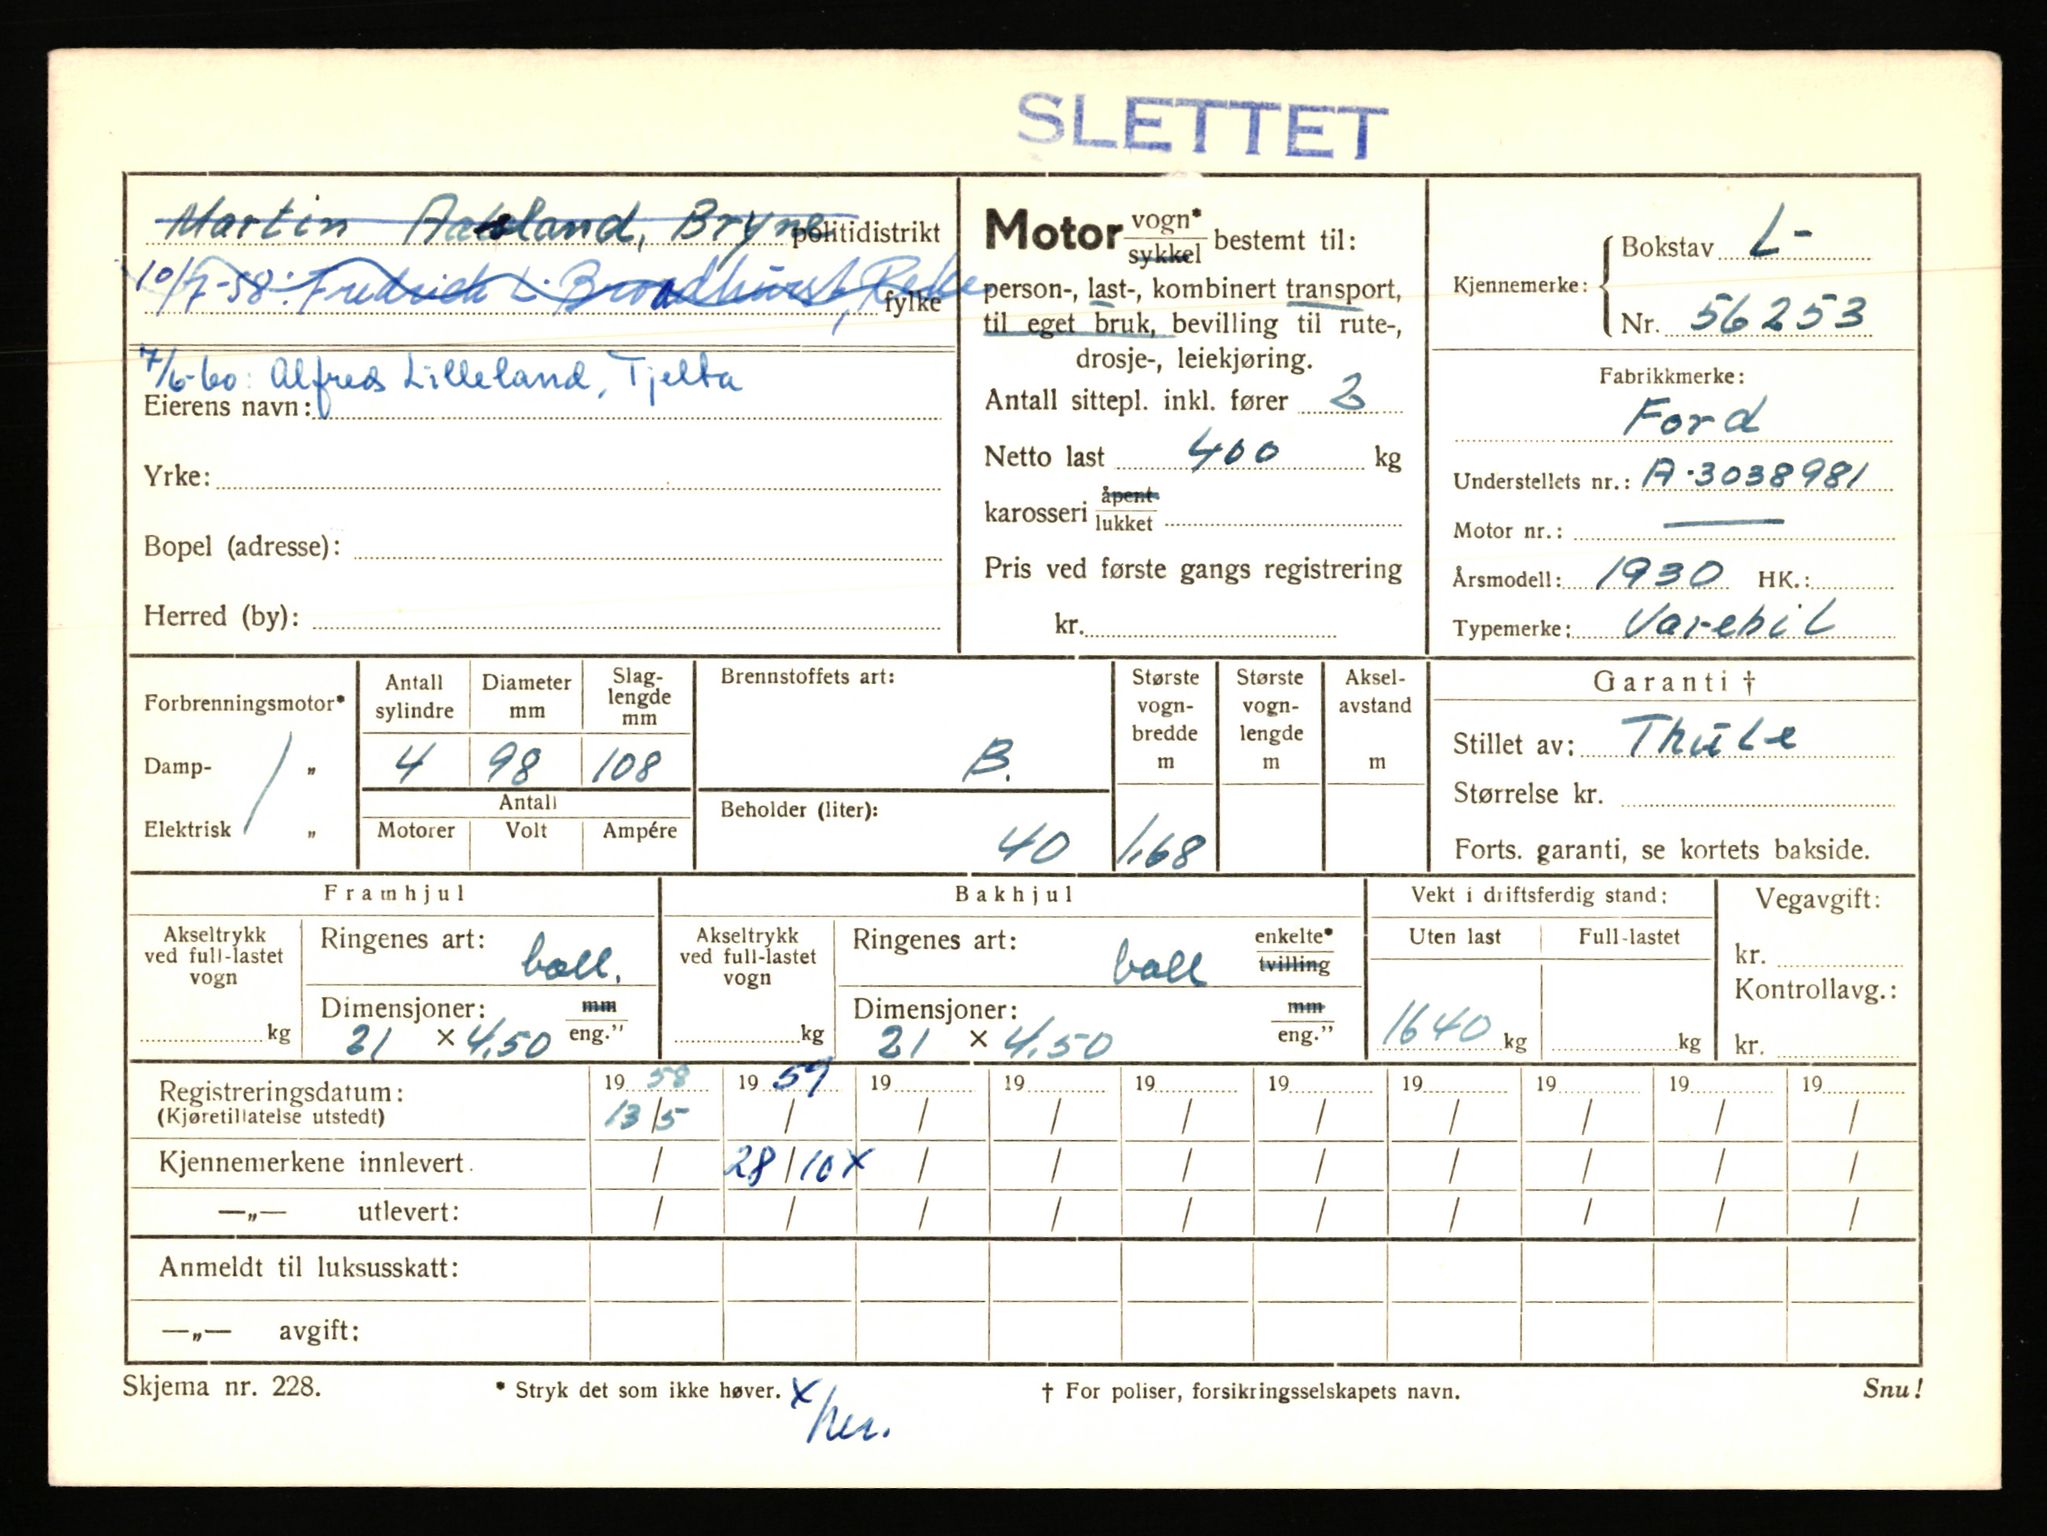 SLETTET
Martin Aasland, Bryne politidistrikt
10/7-58: Fredrick L. Broadhurst, fylke
7/6-60: Alfred Lilleland, Tjelta
Eierens navn:
Yrke:
Bopel (adresse):
Herred (by):
Motor vogn* sykkel bestemt til:
person-, last-, kombinert transport,
til eget bruk, bevilling til rute-,
drosje-, leiekjøring.
Antall sittepl. inkl. fører 2
Netto last 400 kg
karosseri åpent lukket
Pris ved første gangs registrering
kr.
Kjennemerke: Bokstav L-
Nr. 56253
Fabrikkmerke:
Ford
Understellets nr.: A-3038981
Motor nr.: —
Årsmodell: 1930 HK.:
Typemerke: Varebil
Forbrenningsmotor*
Damp- „
Elektrisk „
Antall sylindre
Diameter mm
Slaglengde mm
4 98 108
Antall
Motorer Volt Ampére
Brennstoffets art:
B.
Beholder (liter):
40
Største vognbredde m
1,68
Største vognlengde m
Akselavstand m
Garanti †
Stillet av: Thule
Størrelse kr.
Forts. garanti, se kortets bakside.
Framhjul
Akseltrykk ved full-lastet vogn
kg
Ringenes art: ball.
Dimensjoner: mm
21 × 4,50 eng.”
Bakhjul
Akseltrykk ved full-lastet vogn
kg
Ringenes art: ball enkelte* tvilling
Dimensjoner: mm
21 × 4.50 eng.”
Vekt i driftsferdig stand:
Uten last Full-lastet
1640 kg kg
Vegavgift:
kr.
Kontrollavg.:
kr.
Registreringsdatum: 19 58 19 59 19 19 19 19 19 19 19 19
(Kjøretillatelse utstedt) 13/5 / / / / / / / / /
Kjennemerkene innlevert. / 28/10 x / / / / / / / /
—„— utlevert: / / / / / / / / / /
Anmeldt til luksusskatt:
—„— avgift:
Skjema nr. 228. * Stryk det som ikke høver. † For poliser, forsikringsselskapets navn. Snu!
x/her.